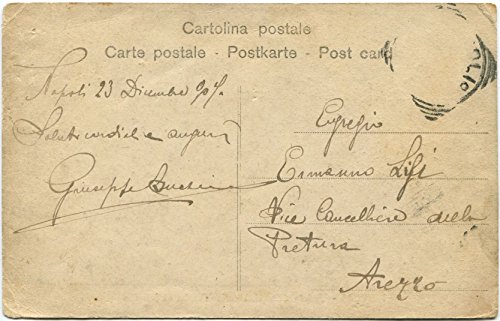 Cartolina postale
Carte postale - Postkarte - Post card
Napoli 23 Dicembre
Saluti cordiali e auguri
Giuseppe
Egregio
Ermanno Lisi
Vice Cancelliere della
Pretura
Arezzo